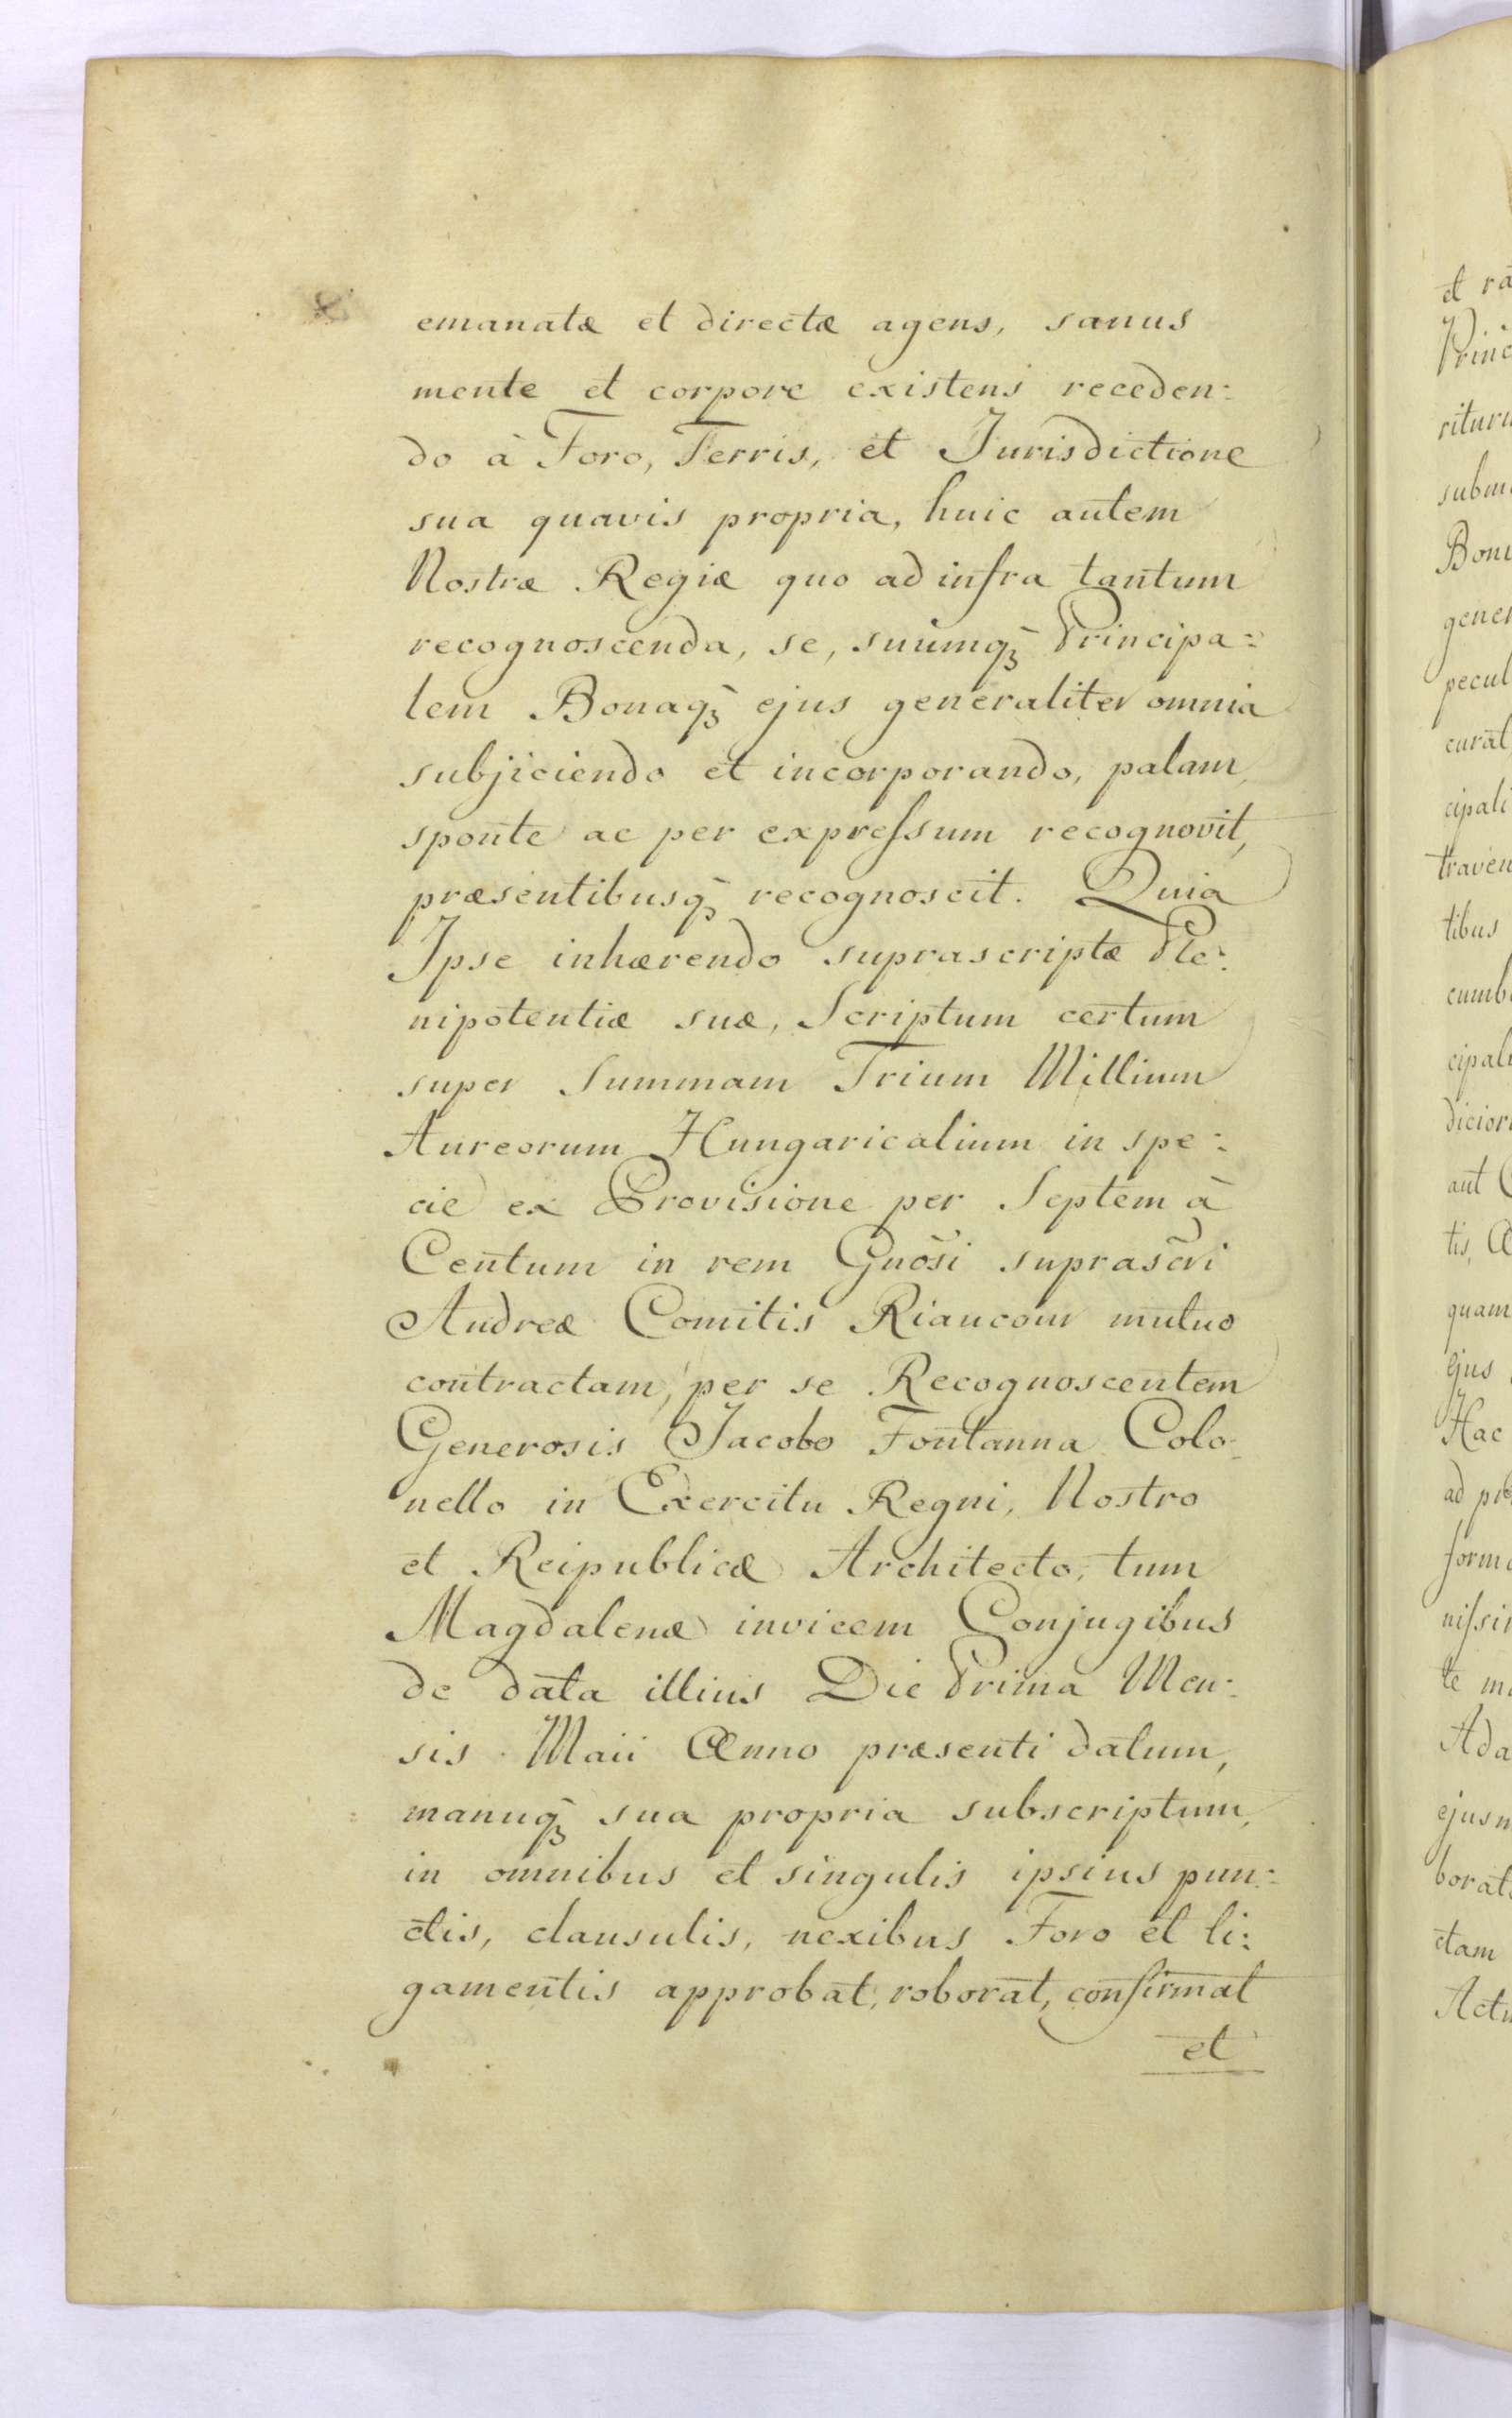 emanatæ et directæ agens, sanus
mente et corpore existens receden:
do à Foro, Terris, et Jurisdictione
sua quavis propria, huic autem
Nostræ Regiæ quo ad infra tantum
recognoscenda, se, suumq̃ Principa:
lem Bonaq̃ ejus generaliter omnia
subjiciendo et incorporando, palam,
sponte ac per expreſsum recognovit,
præsentibusq̃ recognoscit. Quia
Ipse inhærendo suprascriptæ Ple:
nipotentiæ suæ, Scriptum certum
super Summam Trium Millium
Aureorum Hungaricalium in spe:
cie ex Provisione per Septem à
Centum in rem Gnõsi suprascr̃i
Andreæ Comitis Riaucour mutuo
contractam, per se Recognoscentem
Generosis Jacobo Fontanna Colo-
nello in Exercitu Regni, Nostro
et Reipublicæ Architecto, tum
Magdalenæ invicem Conjugibus
de data illius Die Prima Men:
sis Maii Anno præsenti datum,
manuq̃ sua propria subscriptum,
in omnibus et singulis ipsius pun:
ctis, clausulis, nexibus Foro et li:
gamentis approbat, roborat, confirmat
et
et ra
Princ
ritur
subm
Bon
gener
pecul
curat
cipali
traven
tibus
cumb
cipal
dicior
aut
tis,
quam
ejus
Hac
ad
form
niſsi
te m
Ada
ejus
borat
ctam
Actu